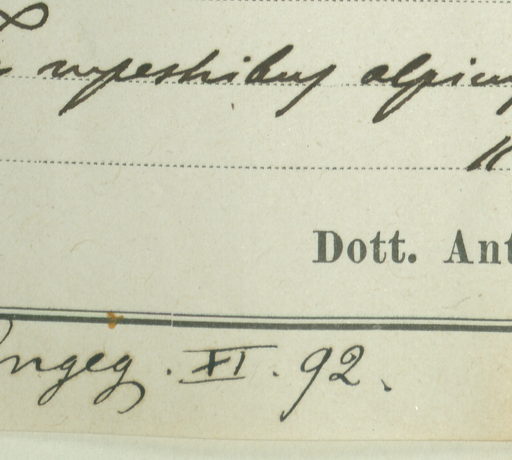 rupestribus alpin
Dott. Ant
ngeg. XI. 92.